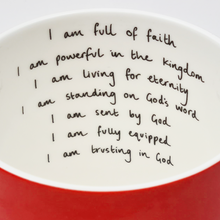 I am full of faith
I am powerful in the kingdom
I am living for eternity
I am standing on God's word
I am sent by God
I am fully equipped
I am trusting in God